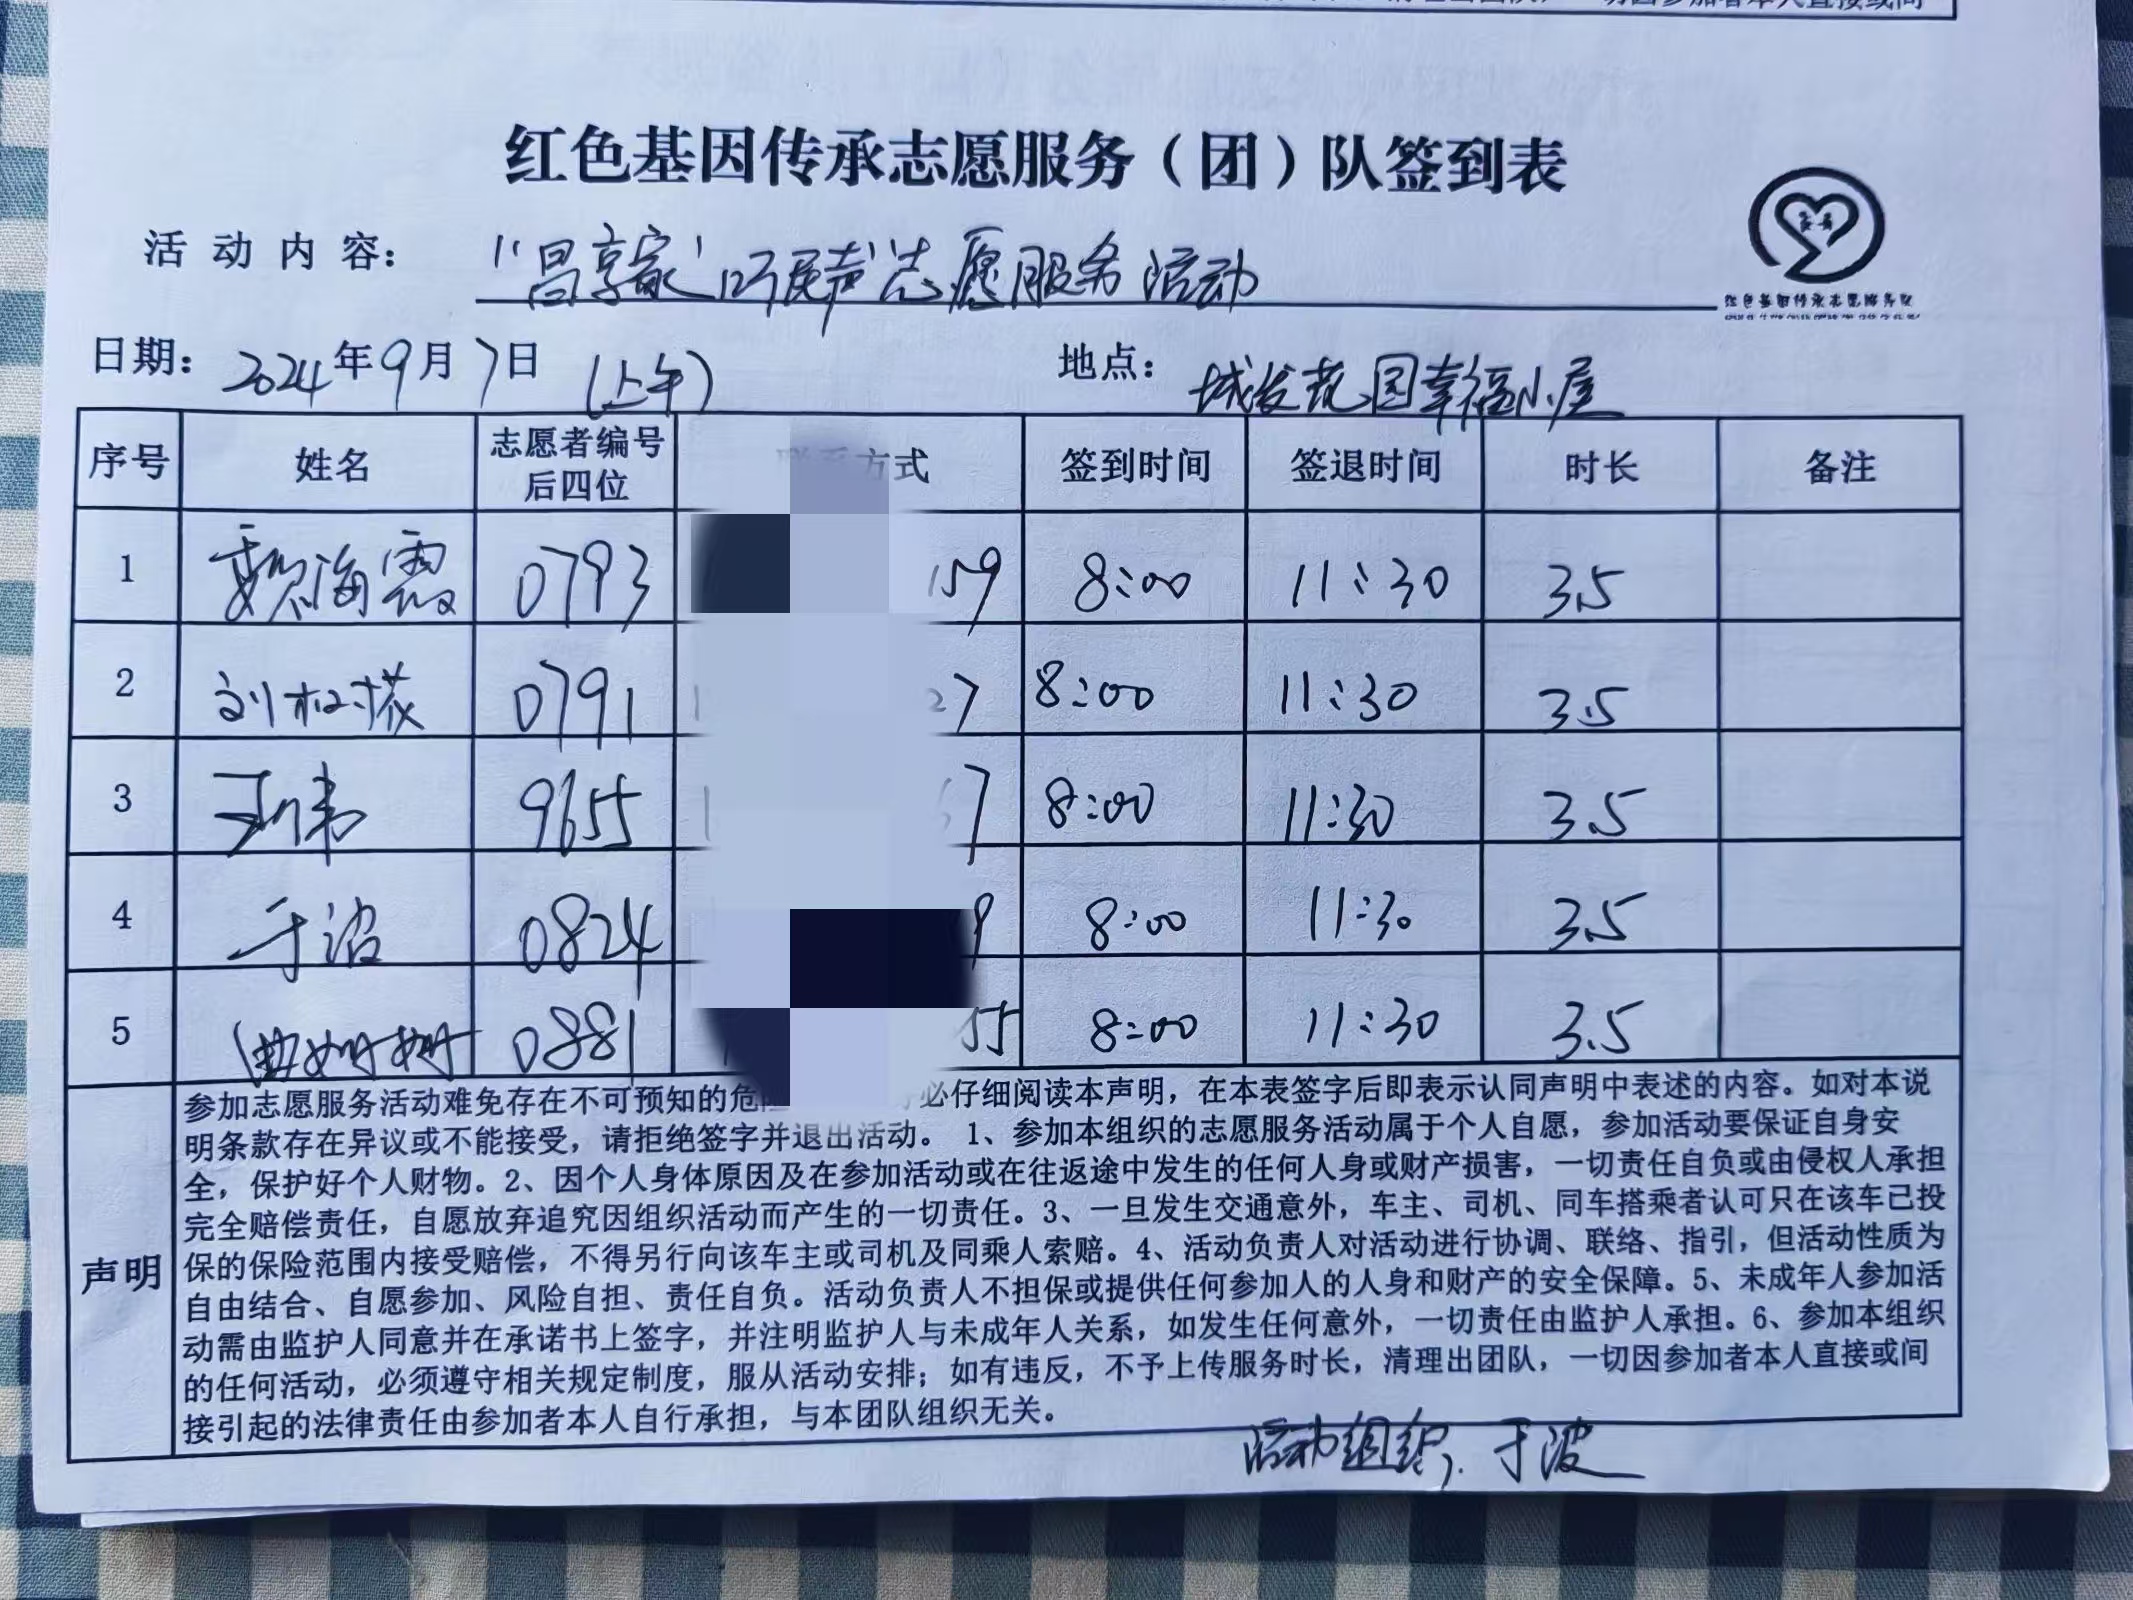 一切因参加者本人直接或间
红色基因传承志愿服务（团）队签到表
活动内容： "昌享家"巧居声"志愿服务活动
红色基因传承志愿服务队
日期：2024年9月7日（上午） 地点：城发花园幸福小屋
序号 姓名 志愿者编号后四位 方式 签到时间 签退时间 时长 备注
1 海霞 0793 159 8:00 11:30 3.5
2 刘 0791 27 8:00 11:30 3.5
3 9655 7 8:00 11:30 3.5
4 于波 0824 9 8:00 11:30 3.5
5 曲姗姗 0881 55 8:00 11:30 3.5
声明
参加志愿服务活动难免存在不可预知的危 必仔细阅读本声明，在本表签字后即表示认同声明中表述的内容。如对本说
明条款存在异议或不能接受，请拒绝签字并退出活动。 1、参加本组织的志愿服务活动属于个人自愿，参加活动要保证自身安
全，保护好个人财物。2、因个人身体原因及在参加活动或在往返途中发生的任何人身或财产损害，一切责任自负或由侵权人承担
完全赔偿责任，自愿放弃追究因组织活动而产生的一切责任。3、一旦发生交通意外，车主、司机、同车搭乘者认可只在该车已投
保的保险范围内接受赔偿，不得另行向该车主或司机及同乘人索赔。4、活动负责人对活动进行协调、联络、指引，但活动性质为
自由结合、自愿参加、风险自担、责任自负。活动负责人不担保或提供任何参加人的人身和财产的安全保障。5、未成年人参加活
动需由监护人同意并在承诺书上签字，并注明监护人与未成年人关系，如发生任何意外，一切责任由监护人承担。6、参加本组织
的任何活动，必须遵守相关规定制度，服从活动安排；如有违反，不予上传服务时长，清理出团队，一切因参加者本人直接或间
接引起的法律责任由参加者本人自行承担，与本团队组织无关。
活动组织：于波